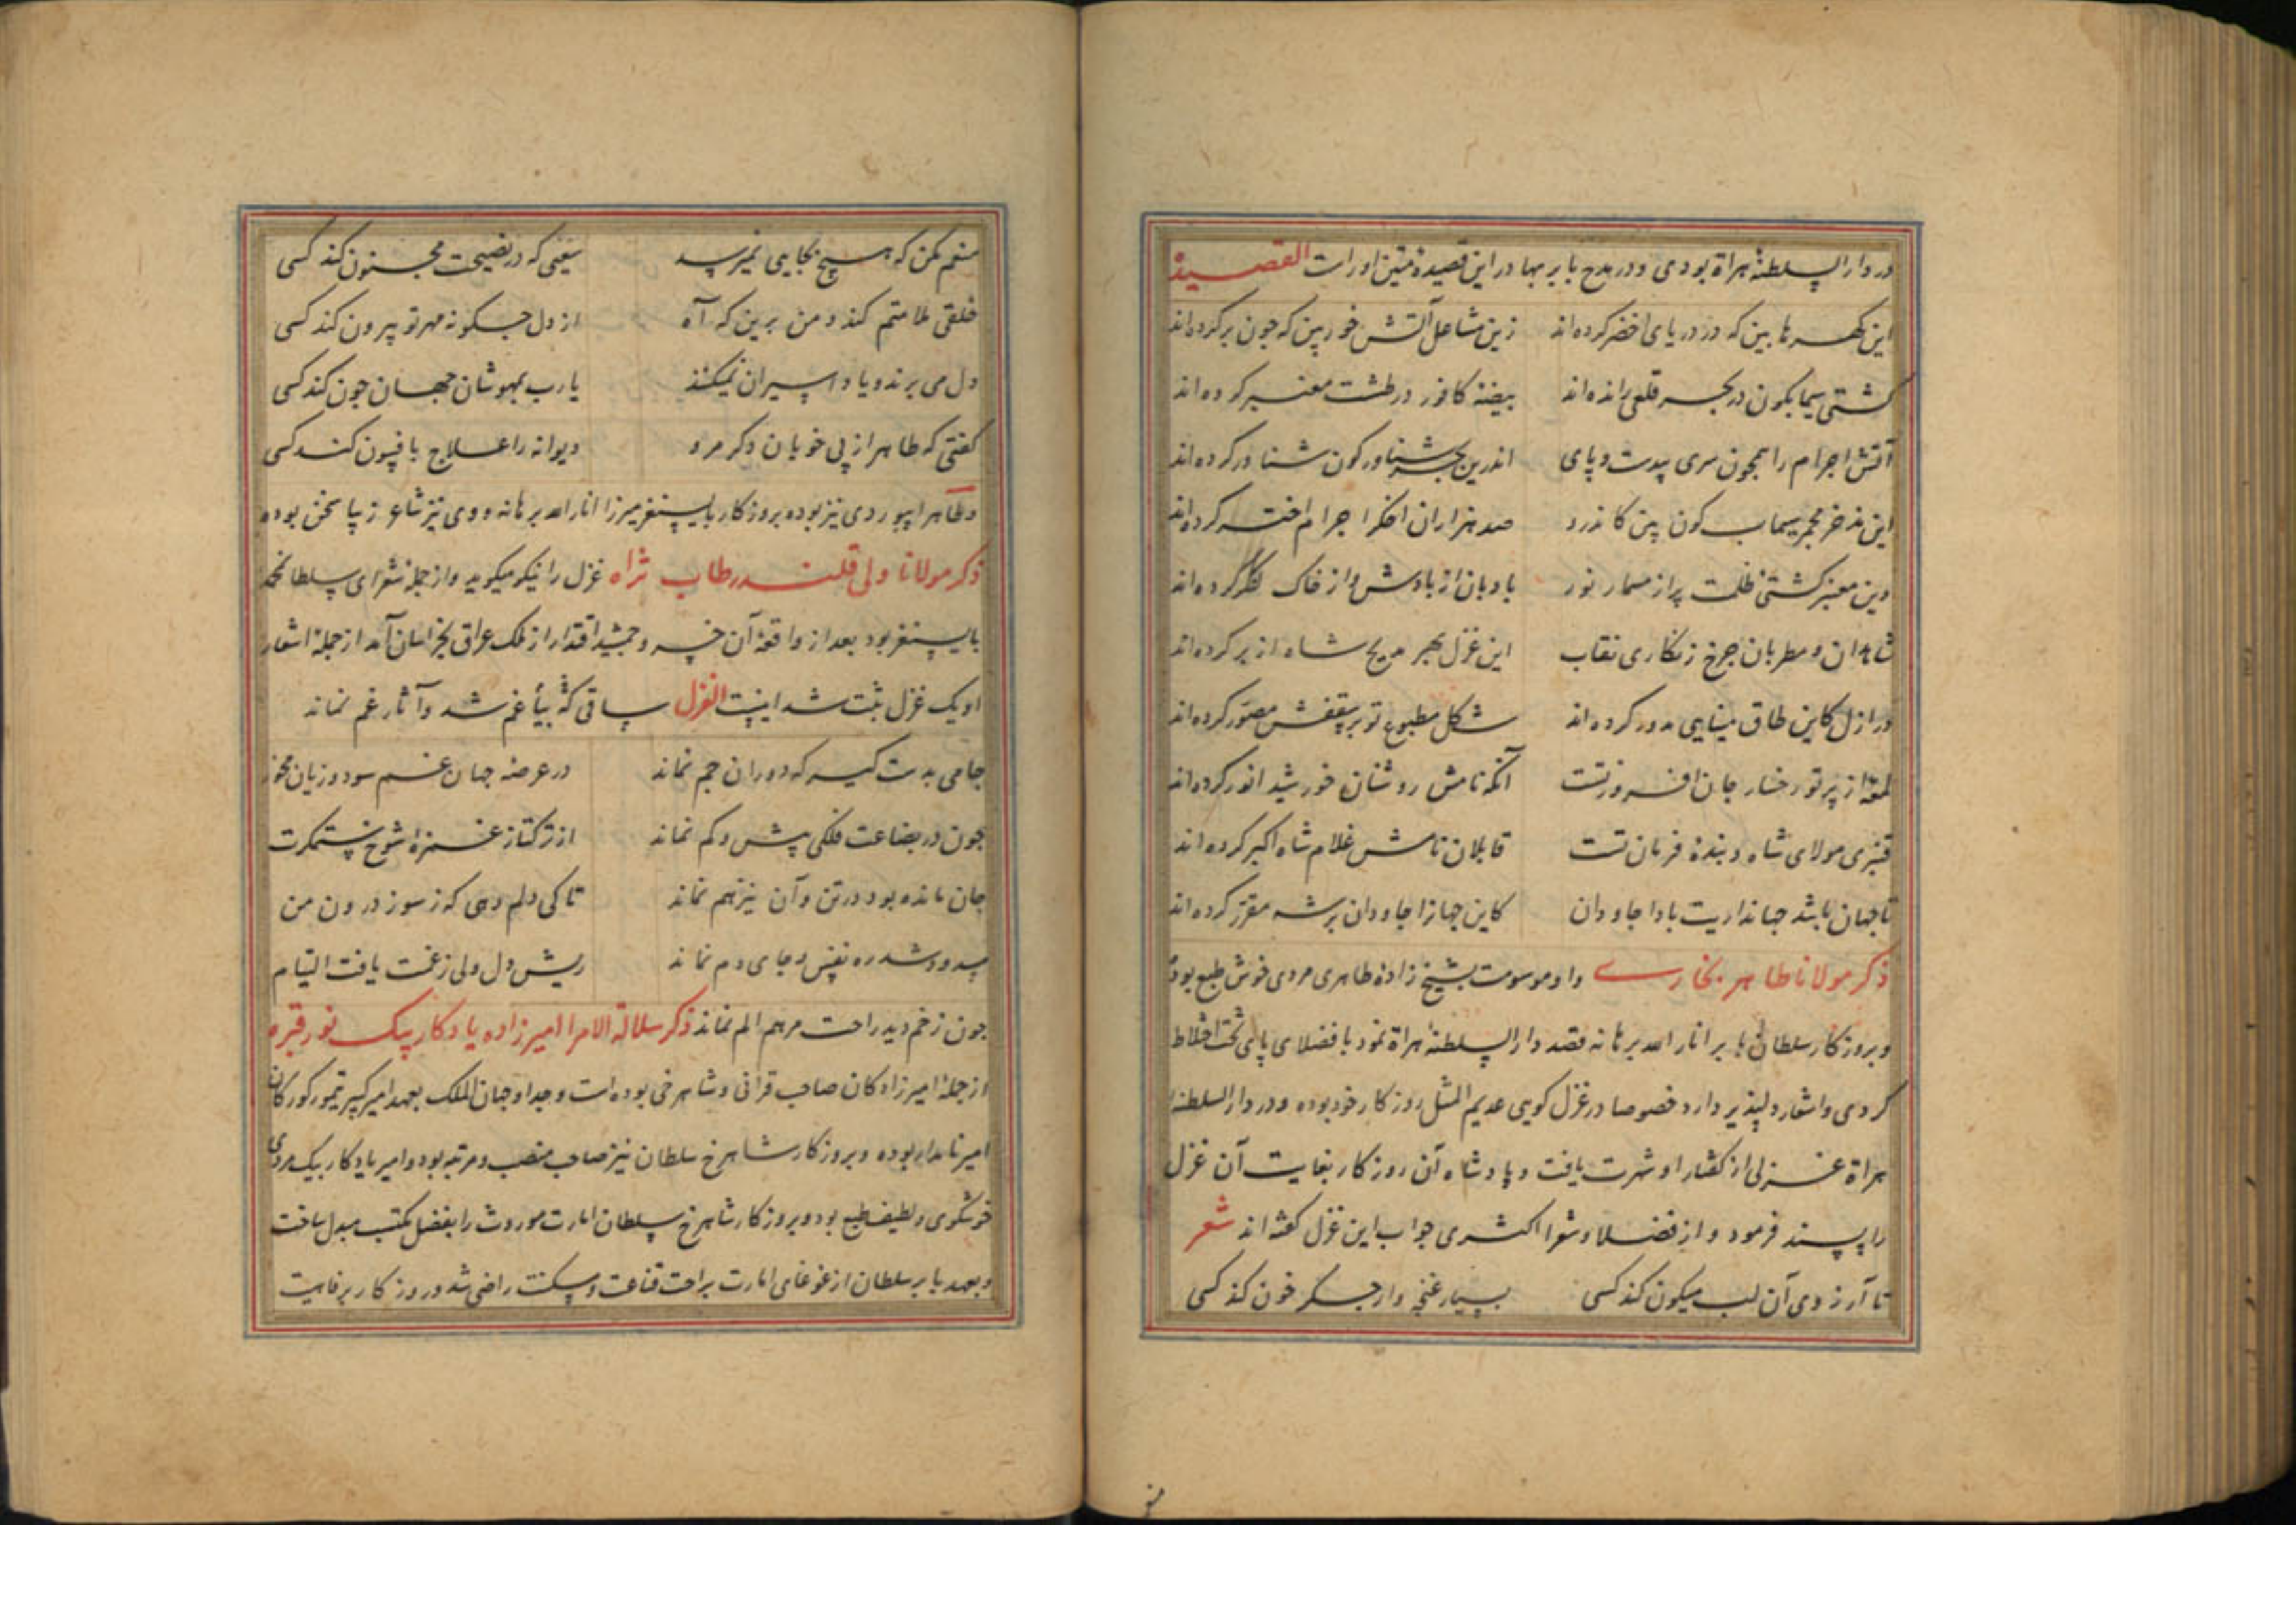 در دار السلطنهٔ هراة بودی و در مدح بابر بهادر این قصیدهٔ متین اوراست القصیده
این کهرها بین که در دریای اخضر کرده‌اند زین مشاعل آتش خور بین که چون بر کرده‌اند
کشتی سیمابکون در بحر قلعی رانده‌اند بیضهٔ کافور در طشت معنبر کرده‌اند
آتش اجرام را همچون سری بیدست و پای اندرین بحر شناور کون شناور کرده‌اند
این مجمر سیماب کون بین کاندرو صد هزاران اخکر اجرام اختر کرده‌اند
وین معنبر کشتی ظلمت پر از مسمار نور بادبان از باد و از خاک لنکر کرده‌اند
شاهدان و مطربان چرخ زنکاری نقاب این غزل بهر مدیح شاه از بر کرده‌اند
در ازل کاین طاق مینایی مدور کرده‌اند شکل مطبوع تو بر سقفش مصور کرده‌اند
لمعهٔ از پرتو رخسار جان افروز تست آنکه نامش روشنان خورشید انور کرده‌اند
قنبری مولای شاه و بندهٔ فرمان تست قابلان نامش غلام شاه اکبر کرده‌اند
تا جهان باشد جهانداریت بادا جاودان کاین جهانرا جاودان بر شه مقرر کرده‌اند
ذکر مولانا طاهر بخاری و او موسومست بشیخ زادهٔ طاهری مردی خوش طبع بوده
و بروزکار سلطان بابر انار الله برهانه قصد دار السلطنهٔ هراة نمود با فضلای پای تخت اختلاط
کردی و اشعار دلپذیر دارد خصوصا در غزل کویی عدیم المثل روزکار خود بوده و در دار السلطنهٔ
هراة غزلی از کفتار او شهرت یافت و پادشاه آن روزکار بغایت آن غزل
را پسند فرمود و از فضلا و شعرا اکثری جواب این غزل کفته‌اند شعر
تا آرزوی آن لب میکون کند کسی بسیار غنچه وار جکر خون کند کسی
منعم مکن که هیچ بجایی نمیرسد سعیی که در نصیحت مجنون کند کسی
خلقی ملامتم کند و من برین که آه از دل چکونه مهر تو بیرون کند کسی
دل می برند و یاد اسیران نمیکنند یا رب بمهوشان جهان چون کند کسی
کفتی که طاهر از پی خوبان دکر مرو دیوانه را علاج بافسون کند کسی
و طاهر ابیوردی نیز بوده بروزکار بایسنغر میرزا انار الله برهانه و وی نیز شاعر زیبا سخن بوده
ذکر مولانا ولی قلندر طاب ثراه غزل را نیکو میکوید و از جمله شعرای سلطان محمد
بایسنغر بود بعد از واقعهٔ آن خسرو جمشید اقتدار از ملک عراق بخراسان آمد از جملهٔ اشعار
او یک غزل ثبت شد اینست الغزل ساقی غم شد و آثار غم نماند
جامی بدست کیر که دوران جم نماند در عرصهٔ جهان غم سود و زیان مخور
چون در بضاعت فلکی بیش و کم نماند از ترکتاز غمزهٔ شوخ ستمکرت
جان مانده بود در تن و آن نیز هم نماند تا کی دلم دمی که ز سوز درون من
مسدود شد ره نفس و جای دم نماند ریش دل ولی ز غمت یافت التیام
چون زخم دید راحت مرهم الم نماند ذکر سلالة الامرا امیرزاده یادکار بیک نور قبره
از جملهٔ امیرزادکان صاحب قرانی و شاهرخی بوده است و جد او جهان الملک بعهد امیر کبیر تیمور کورکان
امیر نامدار بوده و بروزکار شاهرخ سلطان نیز صاحب منصب و مرتبه بود و امیر یادکار بیک مردی
خوشکوی و لطیف طبع بود و بروزکار شاهرخ سلطان امارت موروث را بفضل مکتسب مبدل ساخت
و بعهد بابر سلطان از غوغای امارت براحت قناعت و مسکنت راضی شد و روزکار برفاهیت